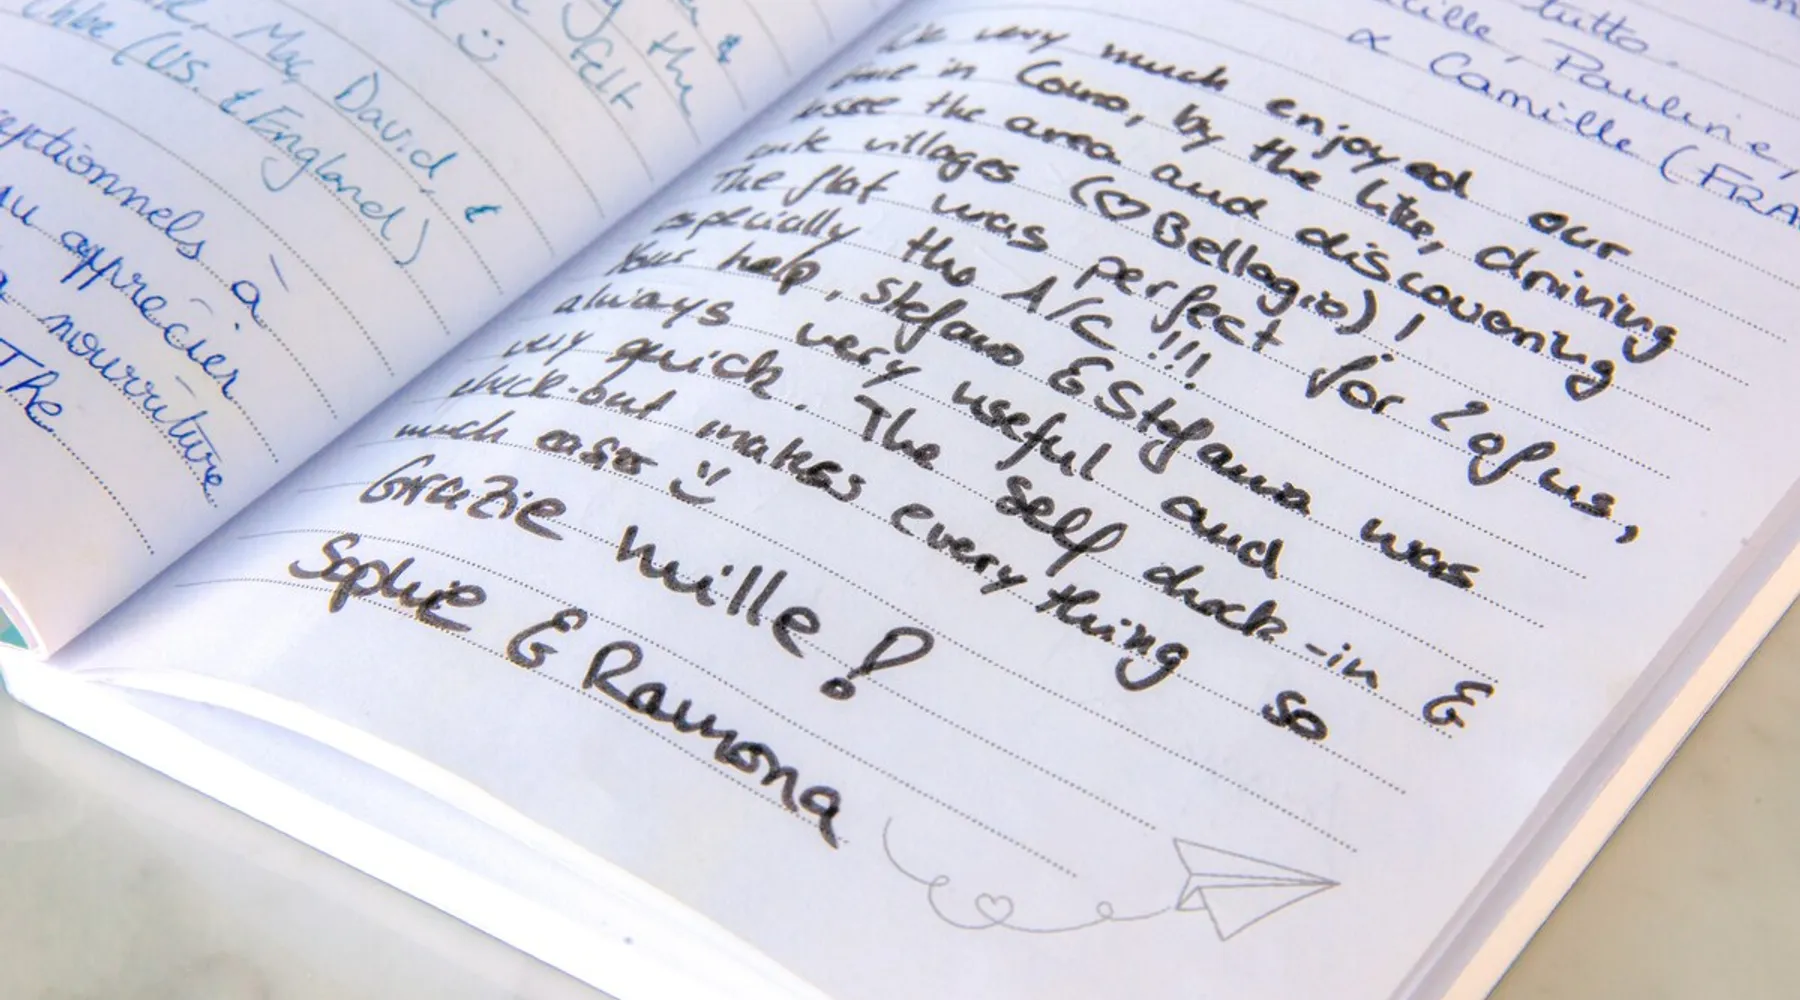 &
the
felt
Max, David, &
Chloe (US. & England)
eptionnels à
au apprécier
nourriture
The
tutto.
cille, Pauline,
& Camille (FRA
We very much enjoyed our
time in Como, by the lake, driving
the area and discovering
villages (♡ Bellagio)!
The flat was perfect for 2 of us,
especially the A/C!!!
Your help, Stefano & Stefania was
always very useful and
very quick. The self check-in &
check-out makes everything so
much easier :)
Grazie mille!
Sophie & Ramona